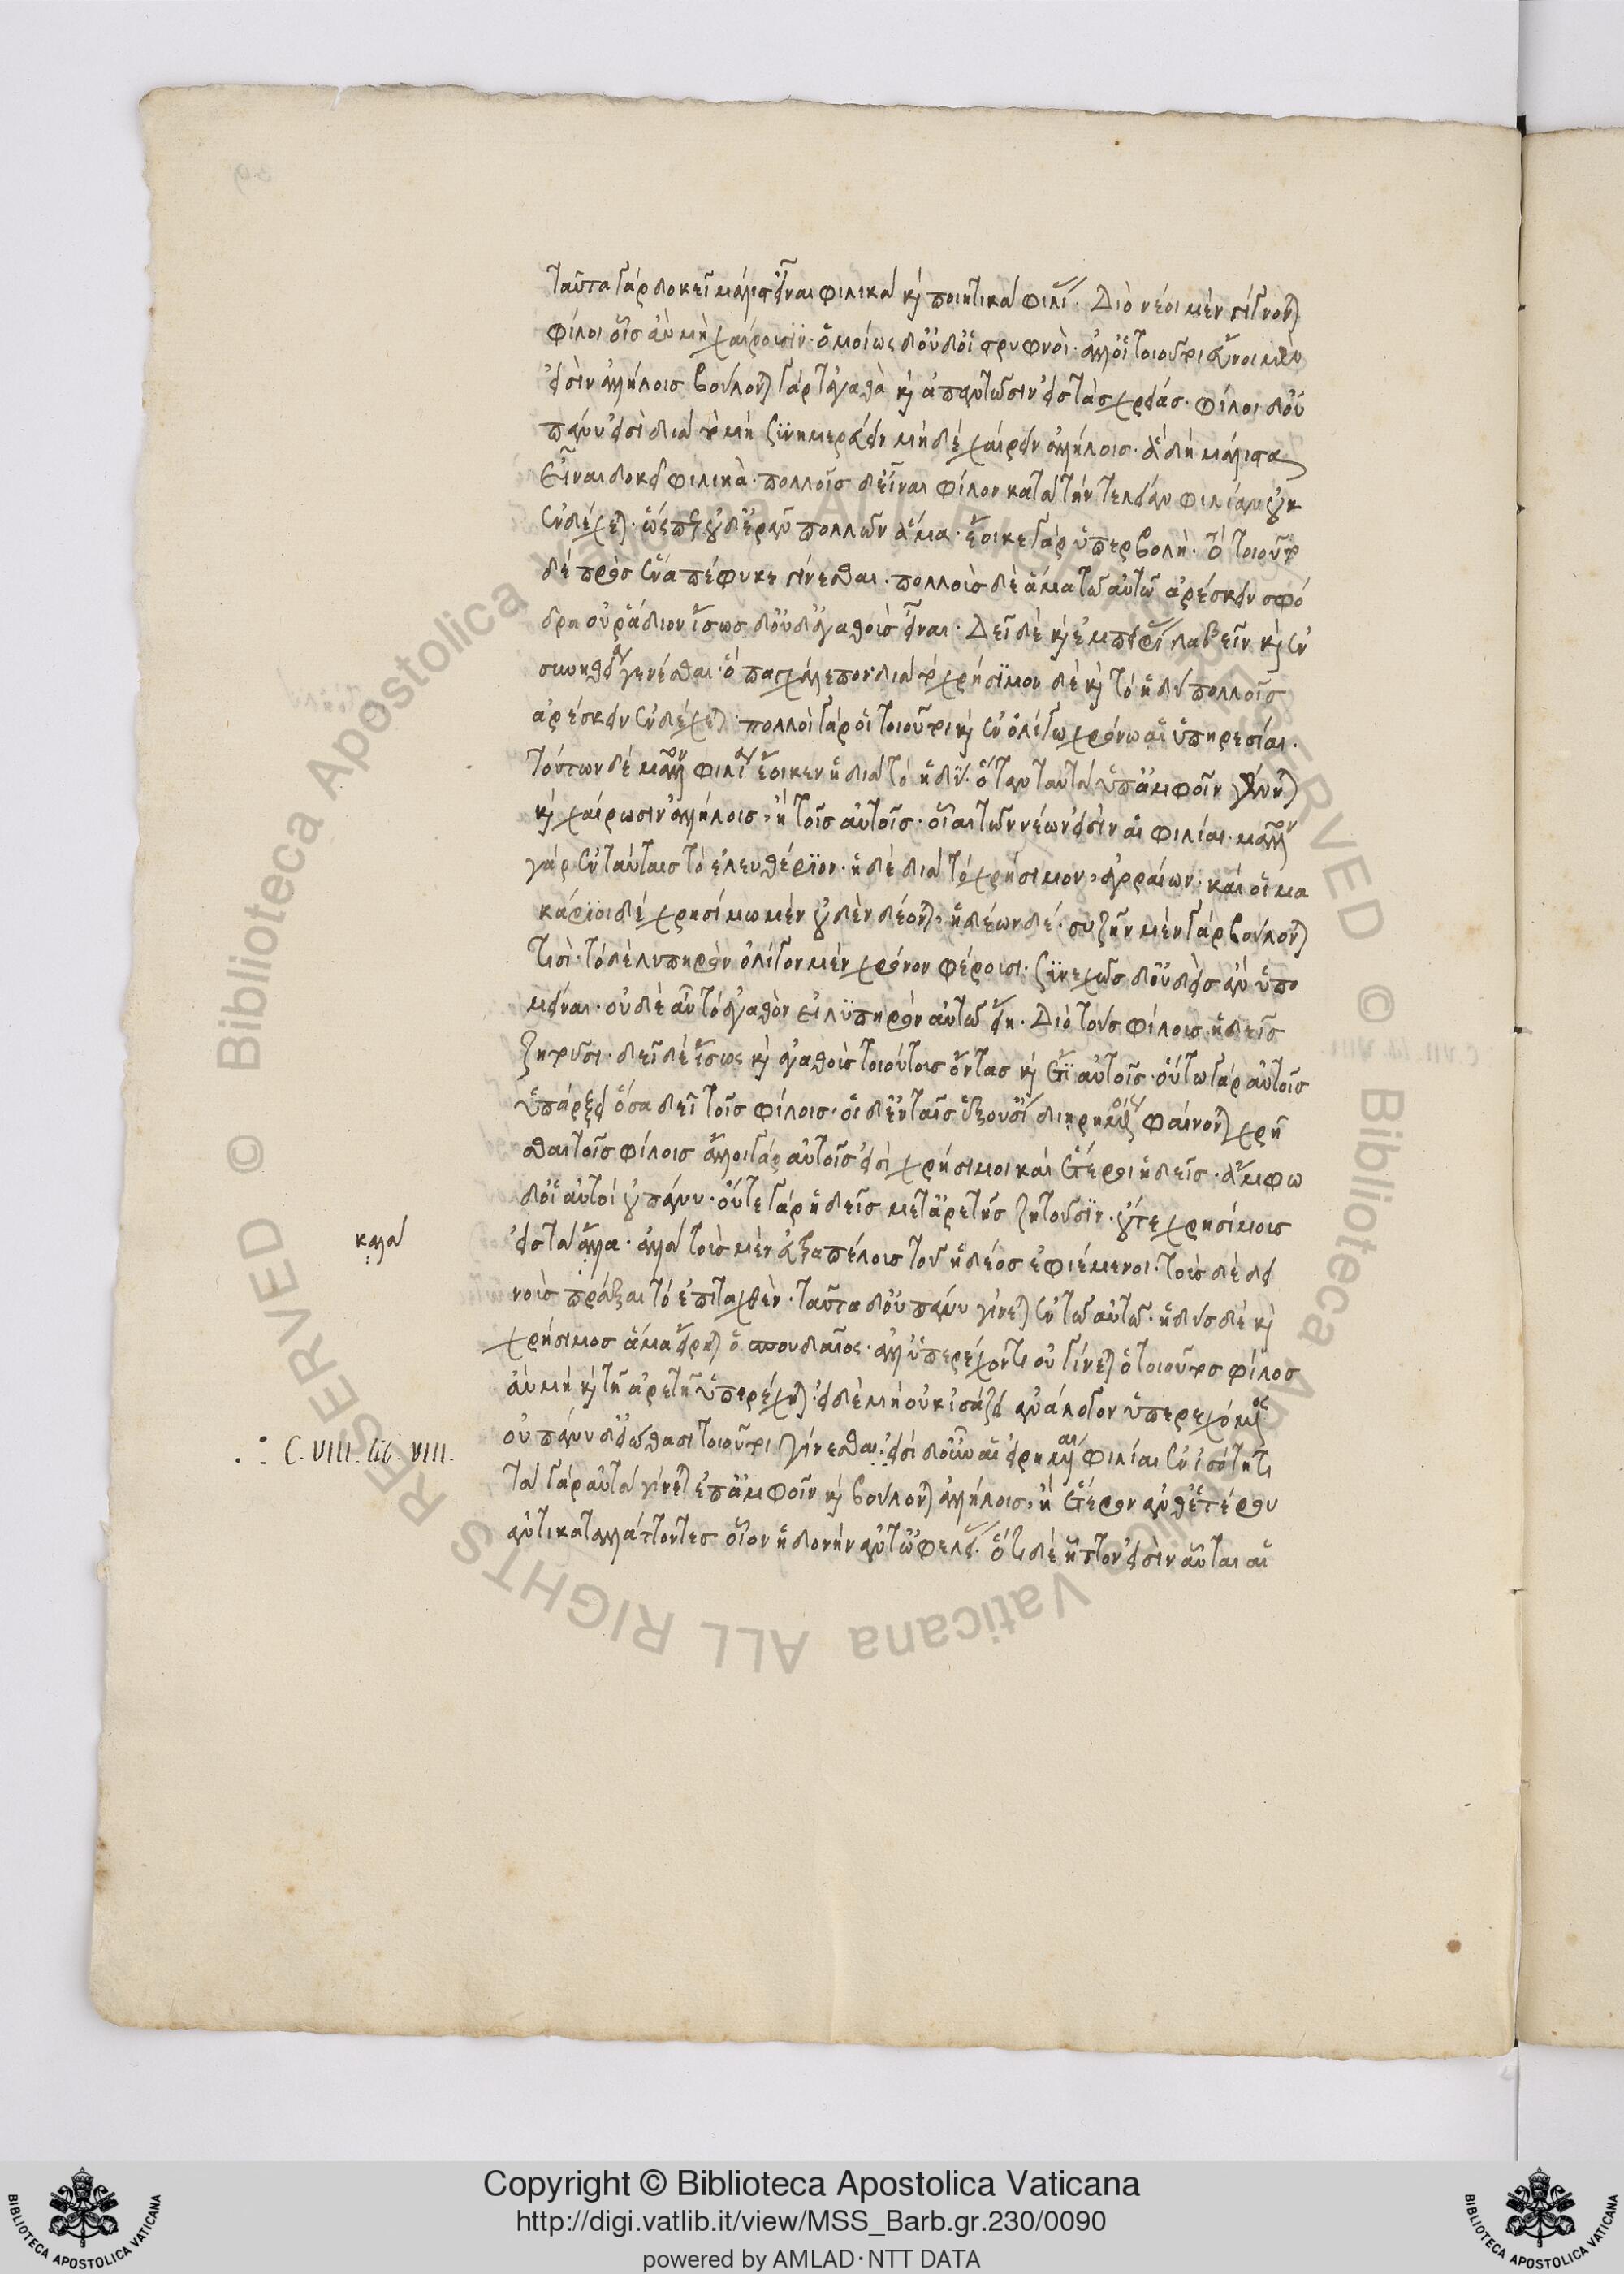 ταῦτα γάρ δοκεῖ μάλιστ' εἶναι φιλικὰ καὶ ποιητικὰ φιλίας. Διὸ νέοι μὲν γίγνονται
φίλοι οἷς ἂν μὴ χαίρουσιν. ὁμοίως δ' οὐδ' οἱ στρυφνοί. ἀλλ' οἱ τοιοῦτοι εὖνοι μὲν
εἰσὶν ἀλλήλοις βούλονται γὰρ τἀγαθὰ καὶ ἀπαντῶσιν εἰς τὰς χρείας. φίλοι δ' οὐ
πάνυ εἰσὶ διὰ τὸ μὴ συνημερεύειν μηδὲ χαίρειν ἀλλήλοις. ἃ δὴ μάλιστα
εἶναι δοκεῖ φιλικά. πολλοῖς δ' εἶναι φίλον κατὰ τὴν τελείαν φιλίαν οὐκ
ἐνδέχεται. ὥσπερ οὐδ' ἐρᾶν πολλῶν ἅμα. ἔοικε γὰρ ὑπερβολῇ. τὸ τοιοῦτο
δὲ πρὸς ἕνα πέφυκε γίνεσθαι. πολλοὺς δὲ ἅμα τῷ αὐτῷ ἀρέσκειν σφό
δρα οὐ ῥάδιον ἴσως δ' οὐδ' ἀγαθοὺς εἶναι. Δεῖ δὲ καὶ ἐμπειρίαν λαβεῖν καὶ ἐν
συνηθείᾳ γενέσθαι. ὃ παγχάλεπον. διὰ τὸ χρήσιμον δὲ καὶ τὸ ἡδὺ πολλοῖς
ἀρέσκειν ἐνδέχεται. πολλοὶ γὰρ οἱ τοιοῦτοι καὶ ἐν ὀλίγῳ χρόνῳ αἱ ὑπηρεσίαι.
τούτων δὲ μᾶλλον φιλίᾳ ἔοικεν ἡ διὰ τὸ ἡδύ. ὅταν ταὐτὰ ὑπ' ἀμφοῖν γίνηται
καὶ χαίρωσιν ἀλλήλοις, ἢ τοῖς αὐτοῖς. οἷαι τῶν νέων εἰσὶν αἱ φιλίαι. μᾶλλον
γὰρ ἐν ταύταις τὸ ἐλευθέριον. ἡ δὲ διὰ τὸ χρήσιμον, ἀγοραίων. καὶ οἱ μα
κάριοι δὲ χρησίμων μὲν οὐδὲν δέονται, ἡδέων δέ. συζῆν μὲν γὰρ βούλονται
τισί. τὸ δὲ λυπηρὸν ὀλίγον μὲν χρόνον φέρουσι. συνεχῶς δ' οὐδεὶς ἂν ὑπο
μείναι. οὐδὲ αὐτὸ τὸ ἀγαθὸν εἰ λυπηρὸν αὐτῷ εἴη. Διὸ τοὺς φίλους ἡδεῖς
ζητοῦσι. δεῖ δὲ ἴσως καὶ ἀγαθοὺς τοιούτους ὄντας καὶ ἔτι αὐτοῖς. οὕτω γὰρ αὐτοῖς
ὑπάρξει ὅσα δεῖ τοῖς φίλοις. οἱ δ' ἐν ταῖς ἐξουσίαις διῃρημένοις φαίνονται χρῆ
σθαι τοῖς φίλοις ἄλλοι γὰρ αὐτοῖς εἰσὶ χρήσιμοι καὶ ἕτεροι ἡδεῖς. ἄμφω
δ' οἱ αὐτοὶ οὐ πάνυ. οὔτε γὰρ ἡδεῖς μετ' ἀρετῆς ζητοῦσιν. οὔτε χρησίμους
εἰς τὰ ἄλλα. ἀλλὰ τοὺς μὲν εὐτραπέλους τοῦ ἡδέος ἐφιέμενοι. τοὺς δὲ δει
νοὺς πρᾶξαι τὸ ἐπιταχθέν. ταῦτα δ' οὐ πάνυ γίνεται ἐν τῷ αὐτῷ. ἡδὺς δὲ καὶ
χρήσιμος ἅμα εἴρηται ὁ σπουδαῖος. ἀλλ' ὑπερέχοντι οὐ γίνεται ὁ τοιοῦτος φίλος
ἂν μὴ καὶ τῇ ἀρετῇ ὑπερέχηται. εἰ δὲ μὴ οὐκ ἰσάζει ἀνάλογον ὑπερεχόμενος
οὐ πάνυ δ' εἰώθασι τοιοῦτοι γίνεσθαι. εἰσὶ δ' οὖν αἱ εἰρημέναι φιλίαι ἐν ἰσότητι
τὰ γὰρ αὐτὰ γίνεται ἐπ' ἀμφοῖν καὶ βούλονται ἀλλήλοις, ἢ ἕτερον ἀνθ' ἑτέρου
ἀντικαταλλάττοντες οἷον ἡδονὴν ἀντ' ὠφελείας. ὅτι δὲ ἧττον εἰσὶν αὗται αἱ
καλὰ
C. VIII. lib. VIII.
© Biblioteca Apostolica Vaticana ALL RIGHTS RESERVED
Copyright © Biblioteca Apostolica Vaticana
http://digi.vatlib.it/view/MSS_Barb.gr.230/0090
powered by AMLAD·NTT DATA
BIBLIOTECA APOSTOLICA VATICANA
BIBLIOTECA APOSTOLICA VATICANA